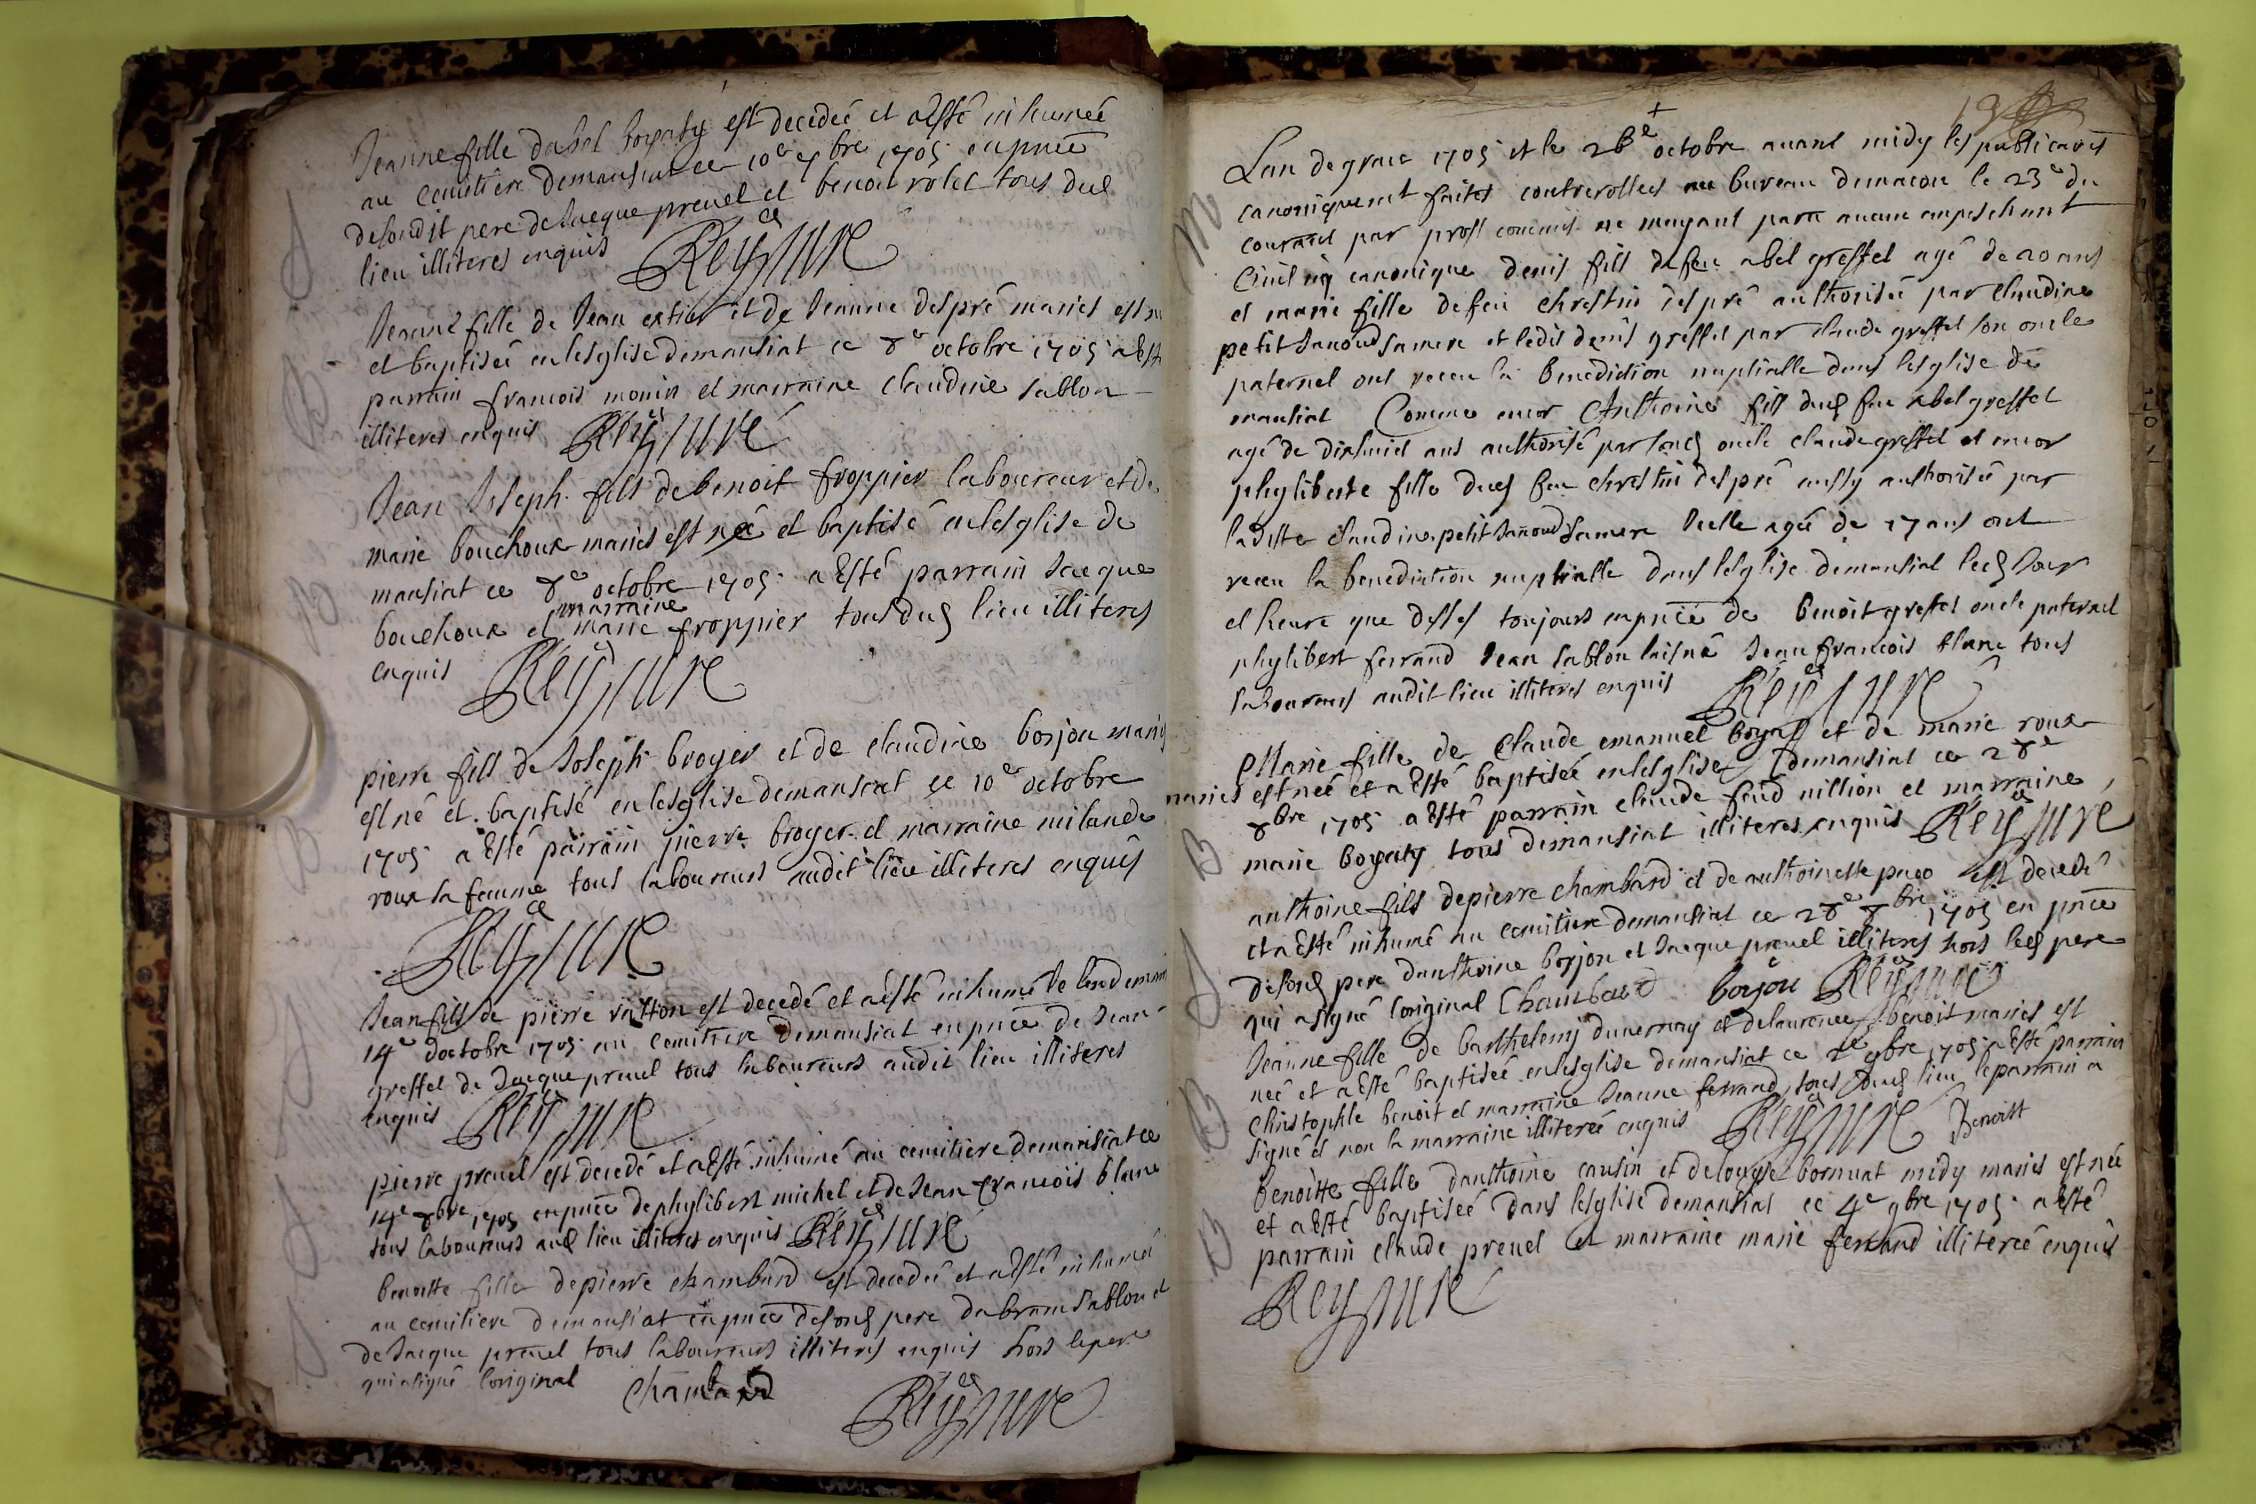 Jeanne fille dabel boyaty est decedeé et aésté inhumeé
au cemitiere demansiat ce 10e 7bre 1705 en pnce
desondit pere de Jacque preuel et benoit rolet tous dud
lieu illiteres enquis Reyssure
Jeanne fille de Jean extier et de Jeanne despré mariés est
et baptiseé enlesglise demansiat ce 8e octobre 1705 aésté
parrain francois monin et marraine claudine sablon
illiteres enquis Reyssure
Jean Joseph fils de benoit froppier laboureur et de
marie bouchoux mariés est né et baptisé enlesglise de
mansiat ce 8e octobre 1705 aésté parrain Jacque
marraine
bouchoux et marie froppier tous dud lieu illiteres
enquis Reyssure
pierre fils de Joseph broyer et de claudine borjon mariés
est né et baptisé enlesglise demansiat ce 10e octobre
1705 aésté parrain pierre broyer et marraine milande
roux sa femme tous laboureurs audit lieu illiteres enquis
Reyssure
Jean fils de pierre est decedé et aésté inhumé le lendemain
14e doctobre 1705 au cemitiere demansiat en pnce de Jean
greffet de Jacque preuel tous laboureurs audit lieu illiteres
enquis Reyssure
pierre preuel est decedé et aésté inhumé au cemitiere demansiat ce
14e 8bre 1705 en pnce de phylibert michel et de Jean francois blanc
tous laboureurs aud lieu illiteres enquis Reyssure
benoitte fille de pierre chambard est decedeé et aésté inhumeé
au cemitiere demansiat en pnce desond pere dabram sablon et
de Jacque preuel tous laboureurs illiteres enquis hors le pere
qui a signé loriginal Chambard Reyssure
19
Lan de grace 1705 et le 26e octobre auant midy les publicaons
canoniquement faites controrollees au bureau demacon le 23e du
courant par prost commis ne mayant paru aucun empeschement
Ciuil ny canonique denis fils de feu abel greffet agé de 20 ans
et marie fille de feu chrestin despré authoriseé par claudine
petit Janoud sa mere et ledit denis greffet par claude greffet son oncle
paternel ont receu la benediction nuptialle dans lesglise de
mansiat Comme encor Anthoine fils dud feu abel greffet
agé de dixhuict ans authorisé par sond oncle claude greffet et encor
phyliberte fille dud feu chrestin despré aussy authoriseé par
laditte claudine petit Janoud sa mere icelle ageé de 17 ans ont
receu la benediction nuptialle dans lesglise demansiat led Jour
et heure que dessus toujours en pnce de benoit greffet oncle paternel
phylibert ferrand Jean sablon laisné Jean francois blanc tous
laboureurs audit lieu illiteres enquis Reyssure
Marie fille de claude emanuel boyat et de marie roux
mariés est née et aésté baptiseé enlesglise demansiat ce 28e
8bre 1705 aésté parrain claude feud uillion et marraine
marie boyaty tous demansiat illiteres enquis Reyssure
anthoine fils de pierre chambard et de anthoinette puco est decedé
et aésté inhumé au cemitiere demansiat ce 28e 8bre 1705 en pnce
desond pere danthoine borjon et Jacque preuel illiteres hors led pere
qui a signé loriginal Chambard borjon Reyssure
Jeanne fille de barthelemy duuernay et delaurence benoit mariés est
neé et aésté baptiseé enlesglise demansiat ce 2e 9bre 1705 aésté parrain
christophle benoit et marraine Jeanne ferrand tous dud lieu le parrain a
signé et non la marraine illitereé enquis Reyssure Benoist
benoitte fille danthoine causin et de louyse bornuat midy mariés est née
et aésté baptiseé dans lesglise demansiat ce 4e 9bre 1705 aésté
parrain claude preuel et marraine marie ferrand illitereé enquis
Reyssure